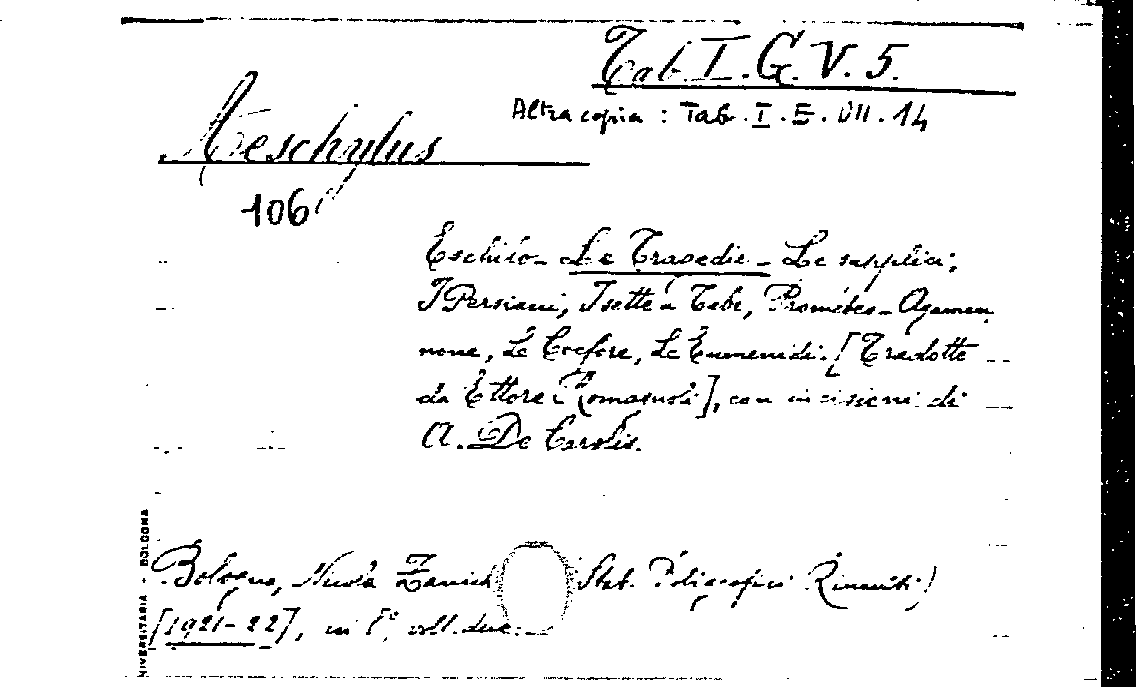 Tab. I. G. V. 5.
Altra copia : Tab. I. E. VII. 14
Aeschylus
106
Eschilo - Le Tragedie - Le supplici;
I Persiani, I sette a Tebe, Prometeo - Agamen
none, Le Coefore, Le Eumenidi. [Tradotte
da Ettore Romagnoli], con incisioni di
A. De Carolis.
Bologna, Nicola Zanich Stab. Poligrafici Riuniti)
[1921-22], in 8°, voll. due.
NIVERSITARIA - BOLOGNA